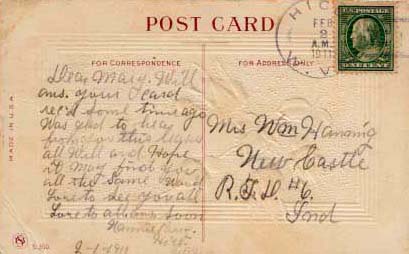 POST CARD
HIC
FEB
2
A.M.
1911
VA.
FOR CORRESPONDENCE
FOR ADDRESS ONLY
MADE IN U.S.A.
Dear Mary. W.
ans. your card
rec'd some time ago
Was glad to hear
from you this leaves
all Well and Hope
it may find
all the Same Would
Love to See you all
Love to all
soon
Mrs Wm Hanning
New Castle
R.F.D. #6.
Ind
2-1-1911